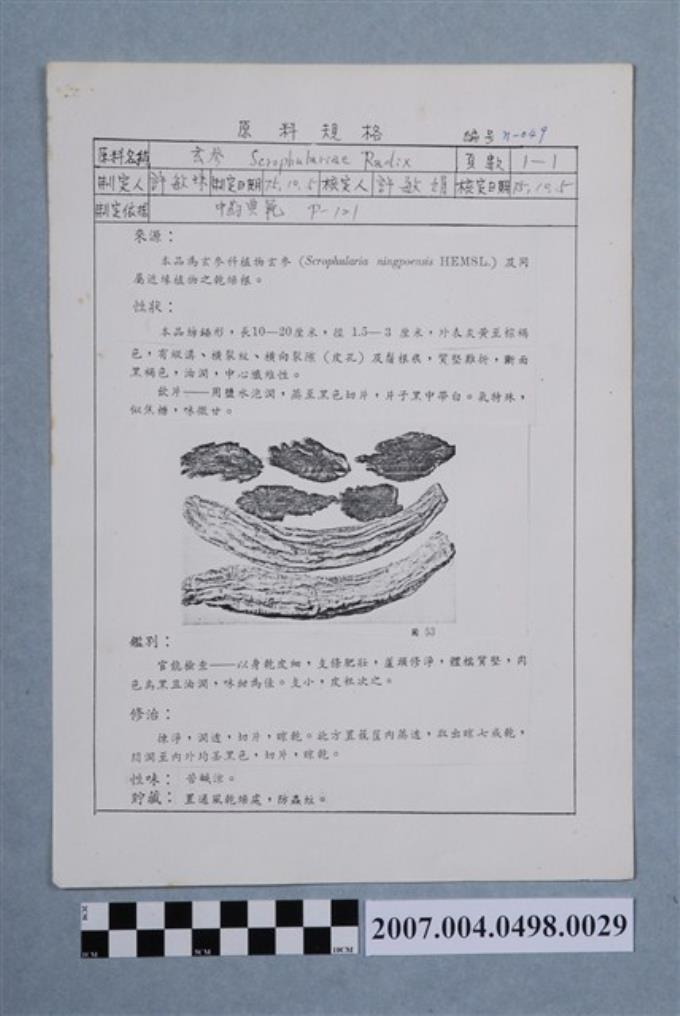 原料規格
編号 n-049
原料名稱 玄參 Scrophulariae Radix 頁數 1-1
制定人 許敏 制定日期 75.10.5 核定人 許敏娟 核定日期 75.10.5
制定依據 中藥典範 P-121
來源：
本品爲玄參科植物玄參 (Scrophularia ningpoensis HEMSL.) 及同
屬近緣植物之乾燥根。
性狀：
本品紡錘形，長10—20厘米，徑 1.5—3 厘米，外表灰黃至棕褐
色，有縱溝、橫裂紋、橫向裂隙（皮孔）及鬚根痕，質堅難折，斷面
黑褐色，油潤，中心纖維性。
飲片——用鹽水泡潤，蒸至黑色切片，片子黑中帶白。氣特殊，
似焦糖，味微甘。
圖 53
鑑別：
官能檢查——以身乾皮細，支條肥壯，蘆頭修淨，體糯質堅，肉
色烏黑且油潤，味甜為佳。支小，皮粗次之。
修治：
揀淨，潤透，切片，晾乾。北方置籠屉內蒸透，取出晾七成乾，
悶潤至內外均呈黑色，切片，晾乾。
性味：苦鹹涼。
貯藏：置通風乾燥處，防蟲蛀。
0CM 5CM 10CM
2007.004.0498.0029